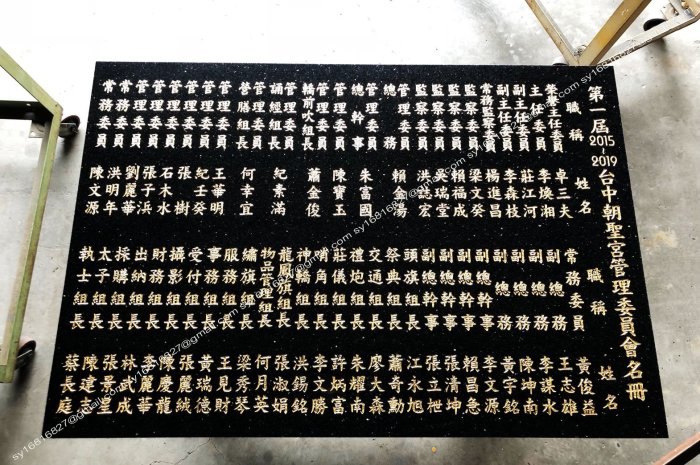 第一屆2015~2019台中朝聖宮管理委員會名冊
職稱 姓名
榮譽主任委員 卓三夫
主任委員 李煥湘
副主任委員 莊江河
副主任委員 李森枝
常務監察委員 楊進昌
監察委員 梁文癸
監察委員 賴福成
監察委員 吳瑞堂
監察委員 洪誌宏
管理委員
總務 賴金湯
管理委員
總幹事 朱富國
管理委員 陳寶玉
管理委員
轎前吹組長 蕭金俊
管理委員
誦經組長 紀素滿
管理委員
營膳組長 何幸宜
管理委員 王華明
管理委員 紀壬癸
管理委員 張樹
管理委員 石木水
管理委員 張子洪
管理委員 劉麗華
常務委員 洪明年
常務委員 陳文源
職稱 姓名
常務委員 黃俊益
副總務 王志雄
副總務 李謀水
副總務 陳坤南
副總幹事 黃宇銘
副總幹事 李文源
副總幹事 賴昌急
副總幹事 張清坤
頭旗組長 張立枻
祭典組長 江永旭
交通組長 蕭奇勳
禮炮組長 廖大森
莊儀組長 朱耀南
哨角組長 許炳富
神轎組長 李文勝
龍鳳旗組長 洪錫銘
物品管理組長 張淑娟
繡旗組長 何月英
服務組長 梁秀琴
事務組長 王見財
受付組長 黃瑞德
攝影組長 張麗絨
財務組長
出納組長
採購組長 林武成
太子組長 張景皇
執士組長 陳建志
蔡長庭
sy16816827@gmail.com